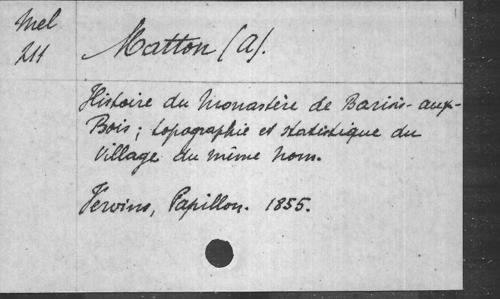 Mel
211
Matton (A).
Histoire du Monastère de Barisis-aux-
Bois ; topographie et statistique du
Village du même nom.
Vervins, Papillon. 1855.